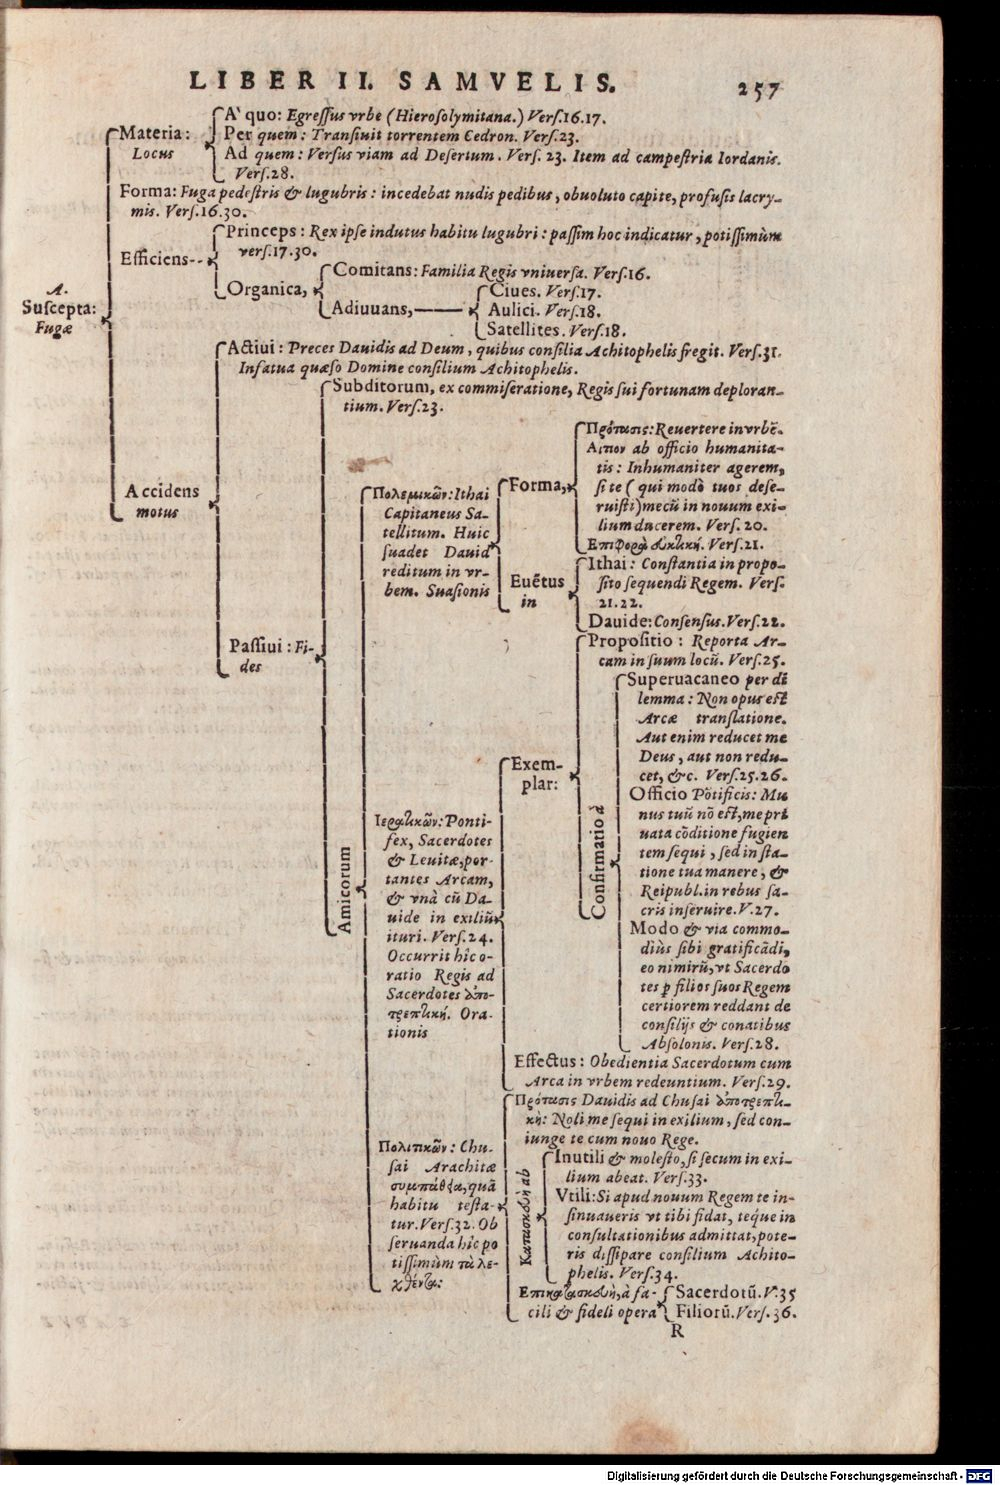 LIBER II. SAMVELIS. 257
A' quo: Egressus vrbe (Hierosolymitana.) Vers.16.17.
Materia:
Locus
Per quem: Transiuit torrentem Cedron. Vers.23.
Ad quem: Versus viam ad Desertum. Vers. 23. Item ad campestria Iordanis.
Vers.28.
Forma: Fuga pedestris & lugubris: incedebat nudis pedibus, obuoluto capite, profusis lacry-
mis. Vers.16.30.
Princeps: Rex ipse indutus habitu lugubri: passim hoc indicatur, potissimùm
vers.17.30.
Efficiens--
Organica,
Comitans: Familia Regis vniuersa. Vers.16.
Adiuuans,
Ciues. Vers.17.
Aulici. Vers.18.
Satellites. Vers.18.
A.
Suscepta:
Fugæ
Actiui: Preces Dauidis ad Deum, quibus consilia Achitophelis fregit. Vers.31.
Infatua quæso Domine consilium Achitophelis.
Accidens
motus
Passiui: Fi-
des
Subditorum, ex commiseratione, Regis sui fortunam deploran-
tium. Vers.23.
Amicorum
Πολεμικῶν: Ithai
Capitaneus Sa-
tellitum. Huic
suadet Dauid
reditum in vr-
bem. Suasionis
Forma,
Πρότασις: Reuertere in vrbẽ.
Αιτιον ab officio humanita-
tis: Inhumaniter agerem,
si te (qui modò tuos dese-
ruisti) mecũ in nouum exi-
lium ducerem. Vers. 20.
Επιφορὰ δυκτική. Vers.21.
Euẽtus
in
Ithai: Constantia in propo-
sito sequendi Regem. Vers.
21.22.
Dauide: Consensus. Vers.22.
Ιερατικῶν: Ponti-
fex, Sacerdotes
& Leuitæ, por-
tantes Arcam,
& vnà cũ Da-
uide in exiliũ
ituri. Vers.24.
Occurrit hîc o-
ratio Regis ad
Sacerdotes ἀπο-
τρεπτική. Ora-
tionis
Exem-
plar:
Propositio: Reporta Ar-
cam in suum locũ. Vers.25.
Confirmatio à
Superuacaneo per di
lemma: Non opus est
Arcæ translatione.
Aut enim reducet me
Deus, aut non redu-
cet, &c. Vers.25.26.
Officio Põtificis: Mu
nus tuũ nõ est, me pri
uata cõditione fugien
tem sequi, sed in sta-
tione tua manere, &
Reipubl. in rebus sa-
cris inseruire. V.27.
Modo & via commo-
diùs sibi gratificãdi,
eo nimirũ, vt Sacerdo
tes p filios suos Regem
certiorem reddant de
consilijs & conatibus
Absolonis. Vers.28.
Effectus: Obedientia Sacerdotum cum
Arca in vrbem redeuntium. Vers.29.
Πολιτικῶν: Chu-
sai Arachitæ
συμπάθεια, quã
habitu testa-
tur. Vers.32. Ob
seruanda hîc po
tissimùm τὰ λε-
χθέντα:
Πρότασις Dauidis ad Chusai ἀποτρεπτι-
κὴ: Noli me sequi in exilium, sed con-
iunge te cum nouo Rege.
Κατασκευὴ ab
Inutili & molesto, si secum in exi-
lium abeat. Vers.33.
Vtili: Si apud nouum Regem te in-
sinuaueris vt tibi fidat, teque in
consultationibus admittat, pote-
ris dissipare consilium Achito-
phelis. Vers.34.
Επικατασκευὴ, à fa-
cili & fideli opera
Sacerdotũ. V.35
Filiorũ. Vers.36.
R
Digitalisierung gefördert durch die Deutsche Forschungsgemeinschaft - DFG